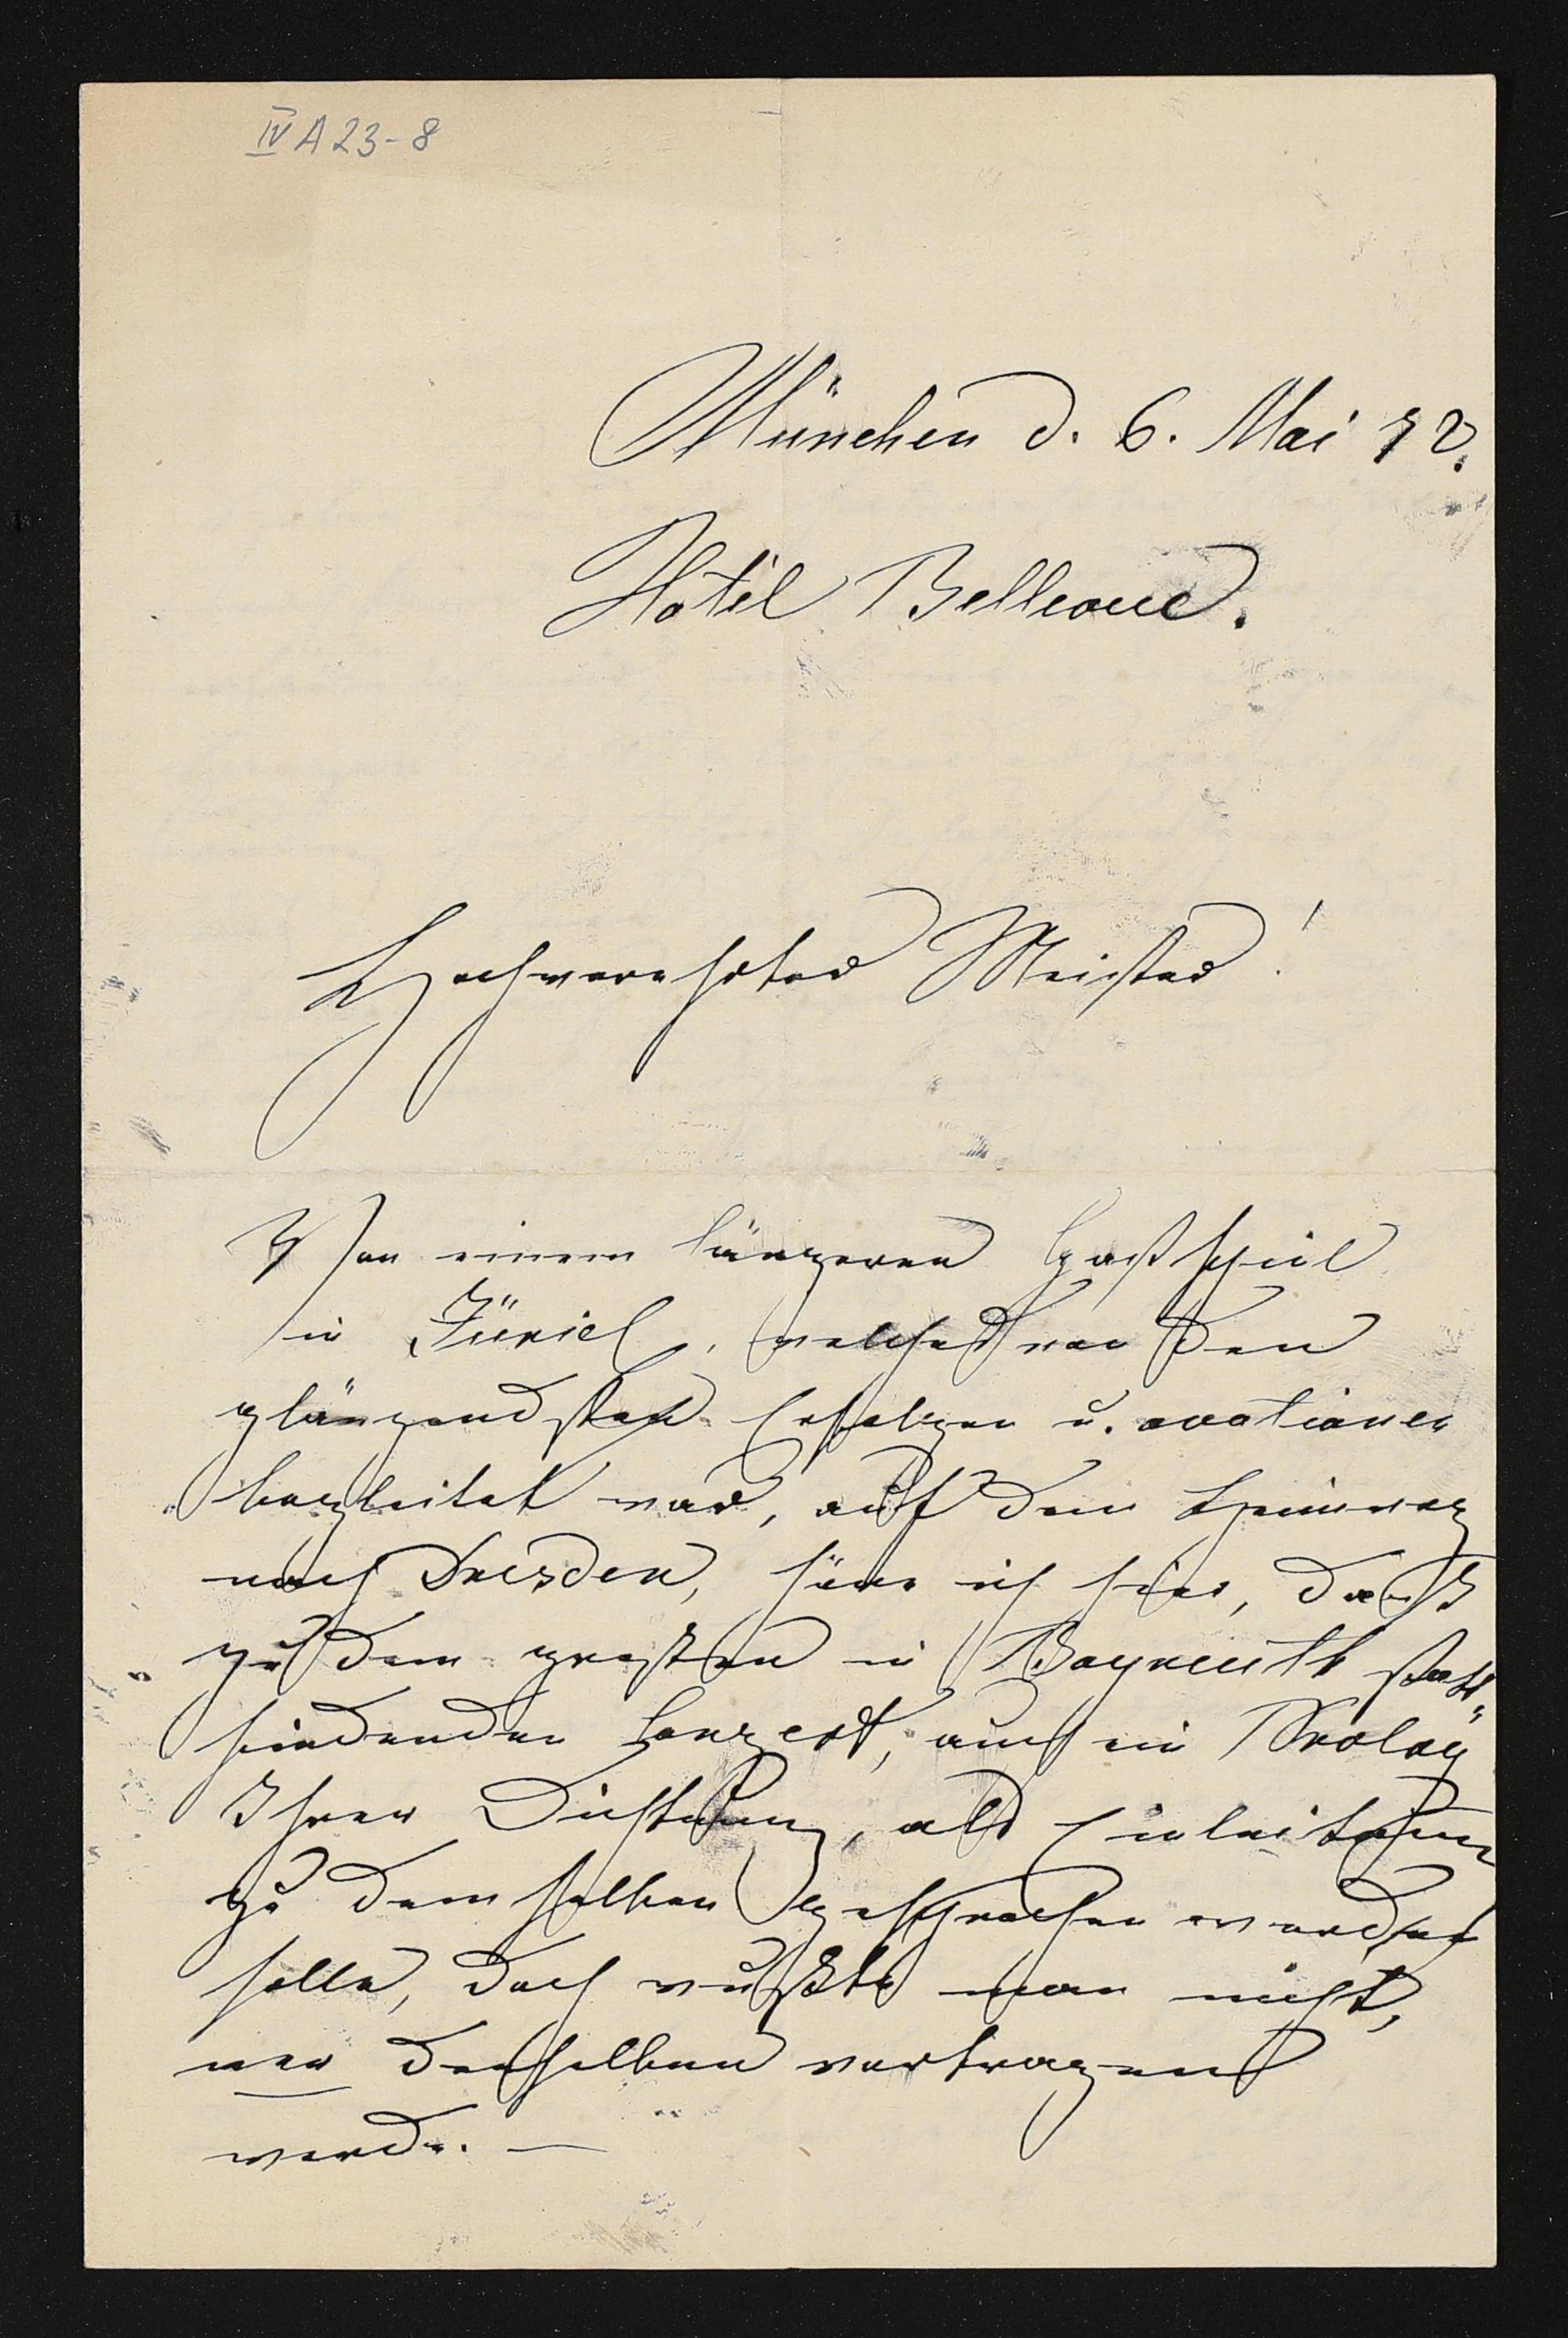 IV A 23-8
München d. 6. Mai 72.
Hôtel Bellevue.
Hochverehrter Meister!
Von einem längeren Gastspiel
in Zürich, welches von den
glänzendsten Erfolgen u. ovationen
begleitet war, auf dem Heimweg
nach Dresden, höre ich hier, daß
zu dem großen in Bayreuth statt"
findenden Conzert, auch ein Prolog
Ihrer Dichtung, als Einleitung
zu demselben gesprochen werden
solle, doch wußte man nicht,
wer denselben vortragen
werde. —